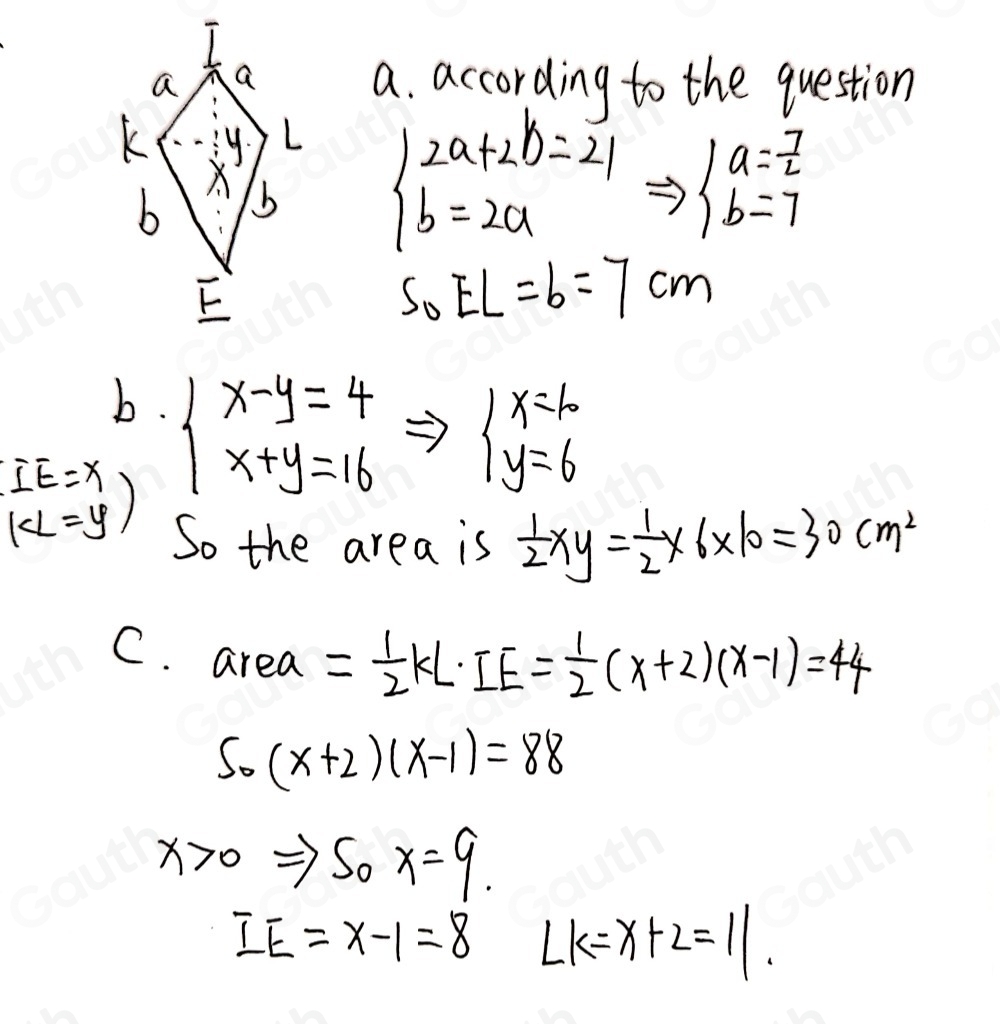 I
a a
K y L
x
b b
E
a. according to the question
{ 2a+2b=21
b=2a
⇒ { a=7/2
b=7
So EL=b=7 cm
b. { x-y=4
x+y=16
⇒ { x=10
y=6
IE=x
KL=y)
So the area is 1/2xy=1/2×6×10=30 cm²
C. area = 1/2KL·IE=1/2(x+2)(x-1)=44
So (x+2)(x-1)=88
x>0 ⇒ So x=9.
IE=x-1=8 LK=x+2=11.
Gauth